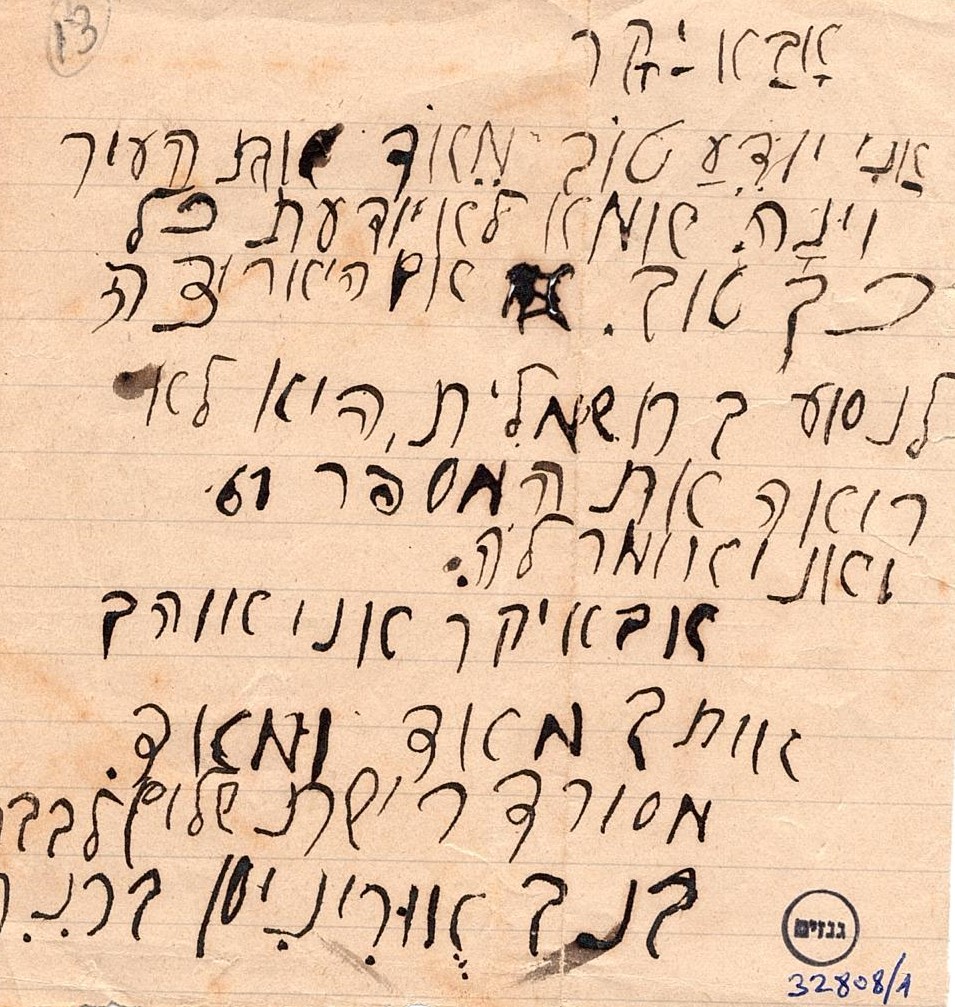 13
אָבָא יָקָר
אֲנִי יוֹדֵעַ טוֹב מְאֹוד אות הָעיר
וינָה אמא לא יודעת כל
כך טוב. אם היא רוצה
לנסוע בחשמלית, היא לא
רואה את המספר 61
ואני אומר לה.
אבא יקר אני אוהב
אותך מאוד ומאוד.
מסור דרישת שלום
בנך
גנזים
32808/1